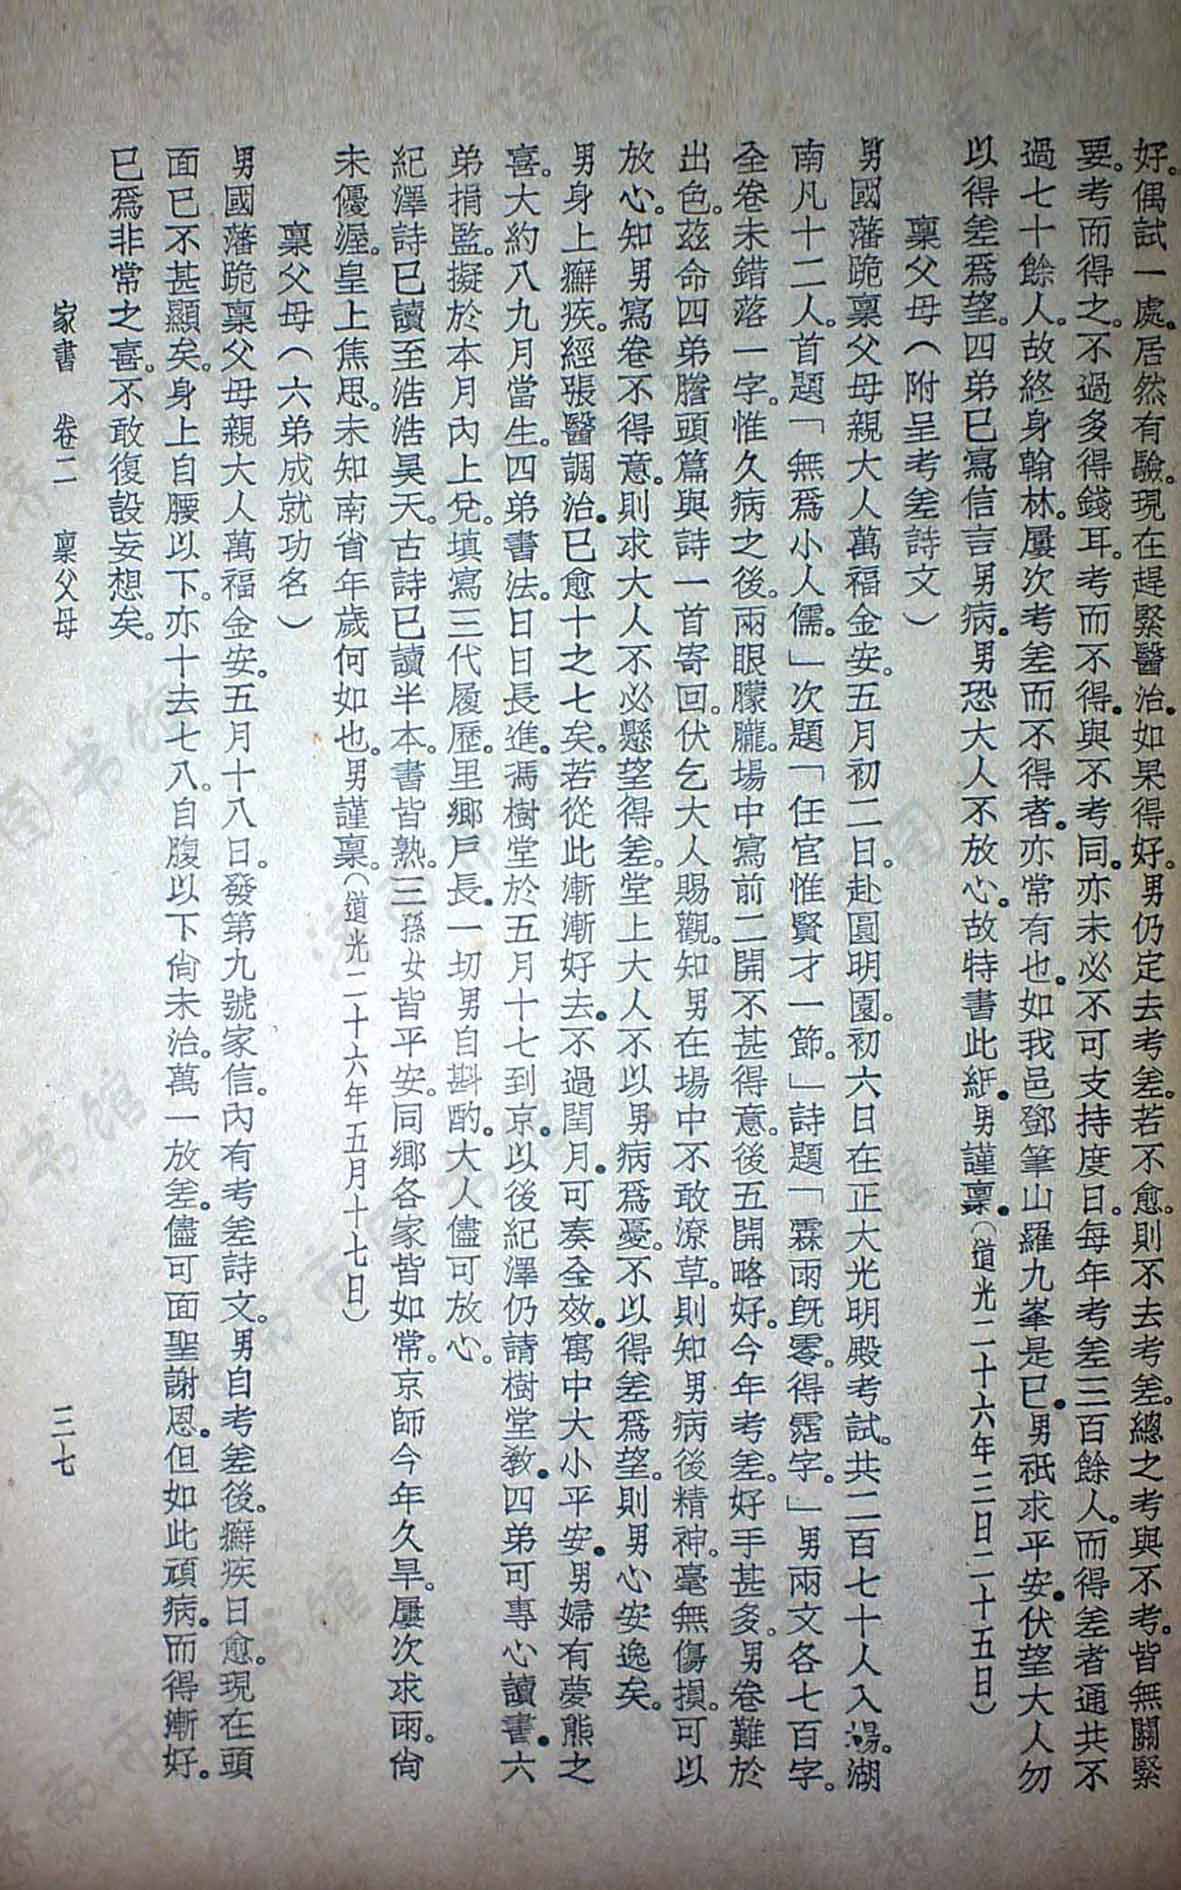 好。偶試一處。居然有驗。現在趕緊醫治。如果得好。男仍定去考差。若不愈。則不去考差。總之考與不考。皆無關緊
要。考而得之。不過多得錢耳。考而不得。與不考同。亦未必不可支持度日。每年考差三百餘人。而得差者通共不
過七十餘人。故終身翰林。屢次考差而不得者。亦常有也。如我邑鄧筆山羅九峯是已。男祇求平安。伏望大人勿
以得差爲望。四弟已寫信言男病。男恐大人不放心。故特書此紙。男謹稟。(道光二十六年三日二十五日)
稟父母(附呈考差詩文)
男國藩跪稟父母親大人萬福金安。五月初二日。赴圓明園。初六日在正大光明殿考試。共二百七十人入場。湖
南凡十二人。首題「無爲小人儒。」次題「任官惟賢才一節。」詩題「霖雨旣零。得霑字。」男兩文各七百字。
全卷未錯落一字。惟久病之後。兩眼朦朧。場中寫前二開不甚得意。後五開略好。今年考差。好手甚多。男卷難於
出色。茲命四弟謄頭篇與詩一首寄回。伏乞大人賜觀。知男在場中不敢潦草。則知男病後精神。毫無傷損。可以
放心。知男寫卷不得意。則求大人不必懸望得差。堂上大人不以男病爲憂。不以得差爲望。則男心安逸矣。
男身上癬疾。經張醫調治。已愈十之七矣。若從此漸漸好去。不過閏月。可奏全效。寓中大小平安。男婦有夢熊之
喜。大約八九月當生。四弟書法。日日長進。馮樹堂於五月十七到京。以後紀澤仍請樹堂教。四弟可專心讀書。六
弟捐監。擬於本月內上兌。填寫三代履歷。里鄉戶長。一切男自斟酌。大人儘可放心。
紀澤詩已讀至浩浩昊天。古詩已讀半本。書皆熟。三孫女皆平安。同鄉各家皆如常。京師今年久旱。屢次求雨。尙
未優渥。皇上焦思。未知南省年歲何如也。男謹稟。(道光二十六年五月十七日)
稟父母(六弟成就功名)
男國藩跪稟父母親大人萬福金安。五月十八日。發第九號家信。內有考差詩文。男自考差後。癬疾日愈。現在頭
面已不甚顯矣。身上自腰以下。亦十去七八。自腹以下尙未治。萬一放差。儘可面聖謝恩。但如此頑病。而得漸好。
已爲非常之喜。不敢復設妄想矣。
家書 卷二 稟父母 三七